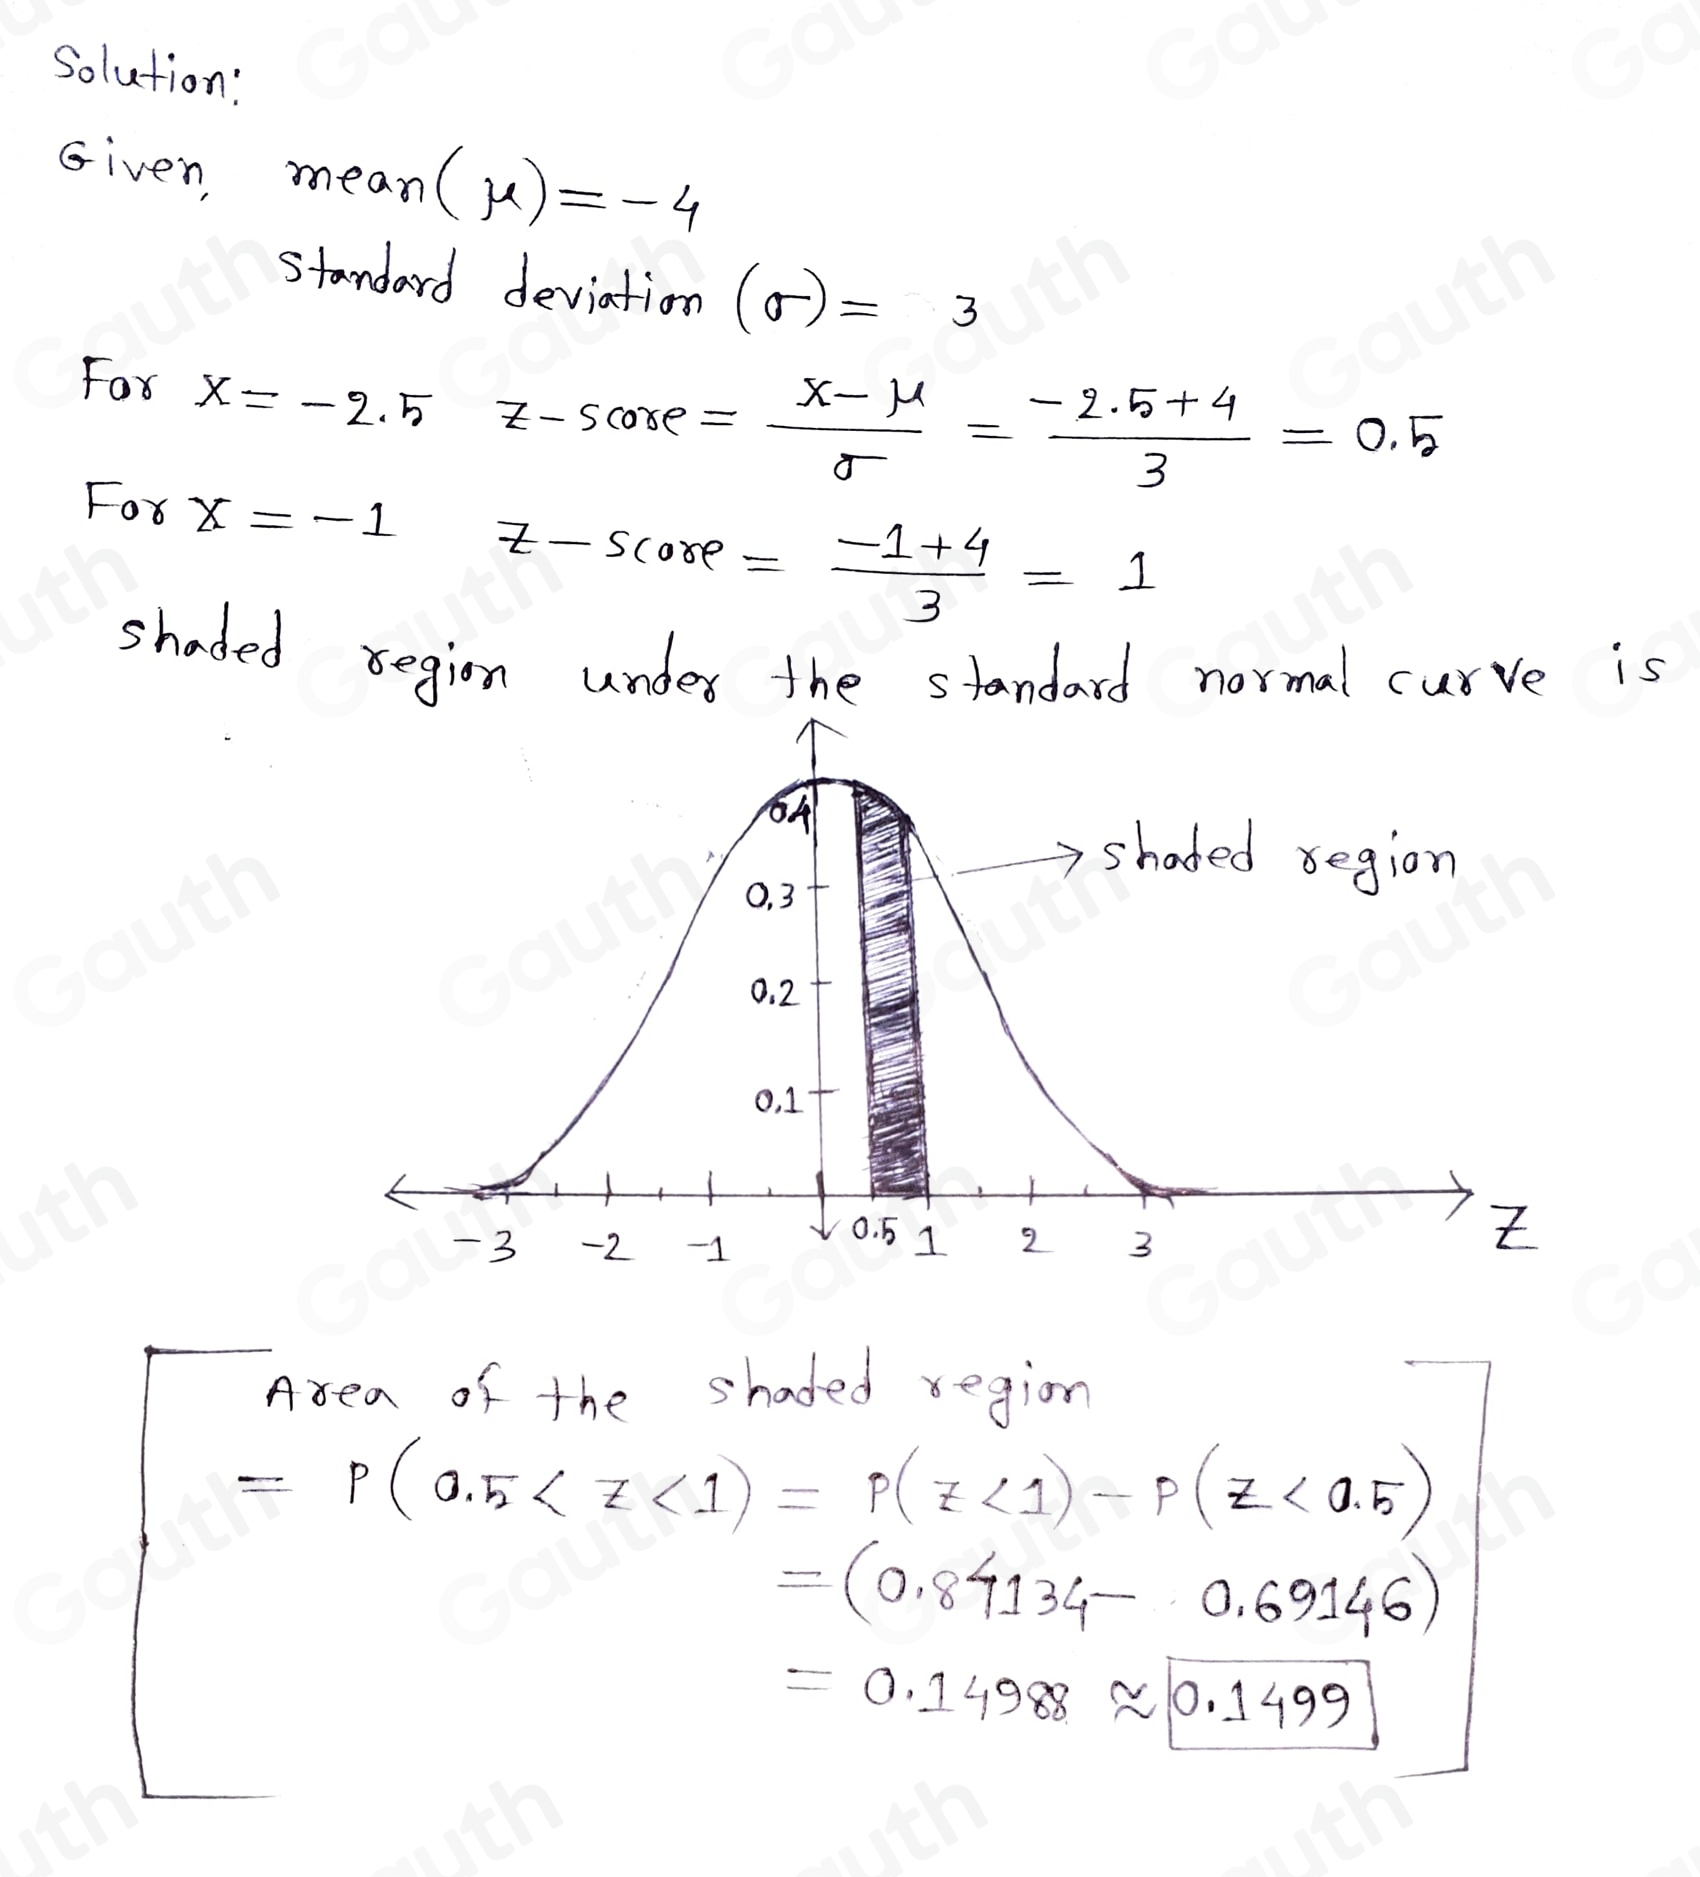 Solution:
Given, mean(μ) = -4
standard deviation (σ) = 3
For x = -2.5 z-score = x-μ/σ = -2.5+4/3 = 0.5
For x = -1 z-score = -1+4/3 = 1
shaded region under the standard normal curve is
0.4
shaded region
0.3
0.2
0.1
-3 -2 -1 0.5 1 2 3 Z
Area of the shaded region
= P(0.5 < z < 1) = P(z < 1) - P(z < 0.5)
= (0.84134 - 0.69146)
= 0.14988 ≈ 0.1499
Gauth